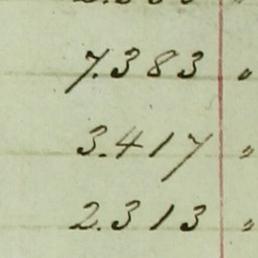 7.383 "
3.417 "
2.313 "